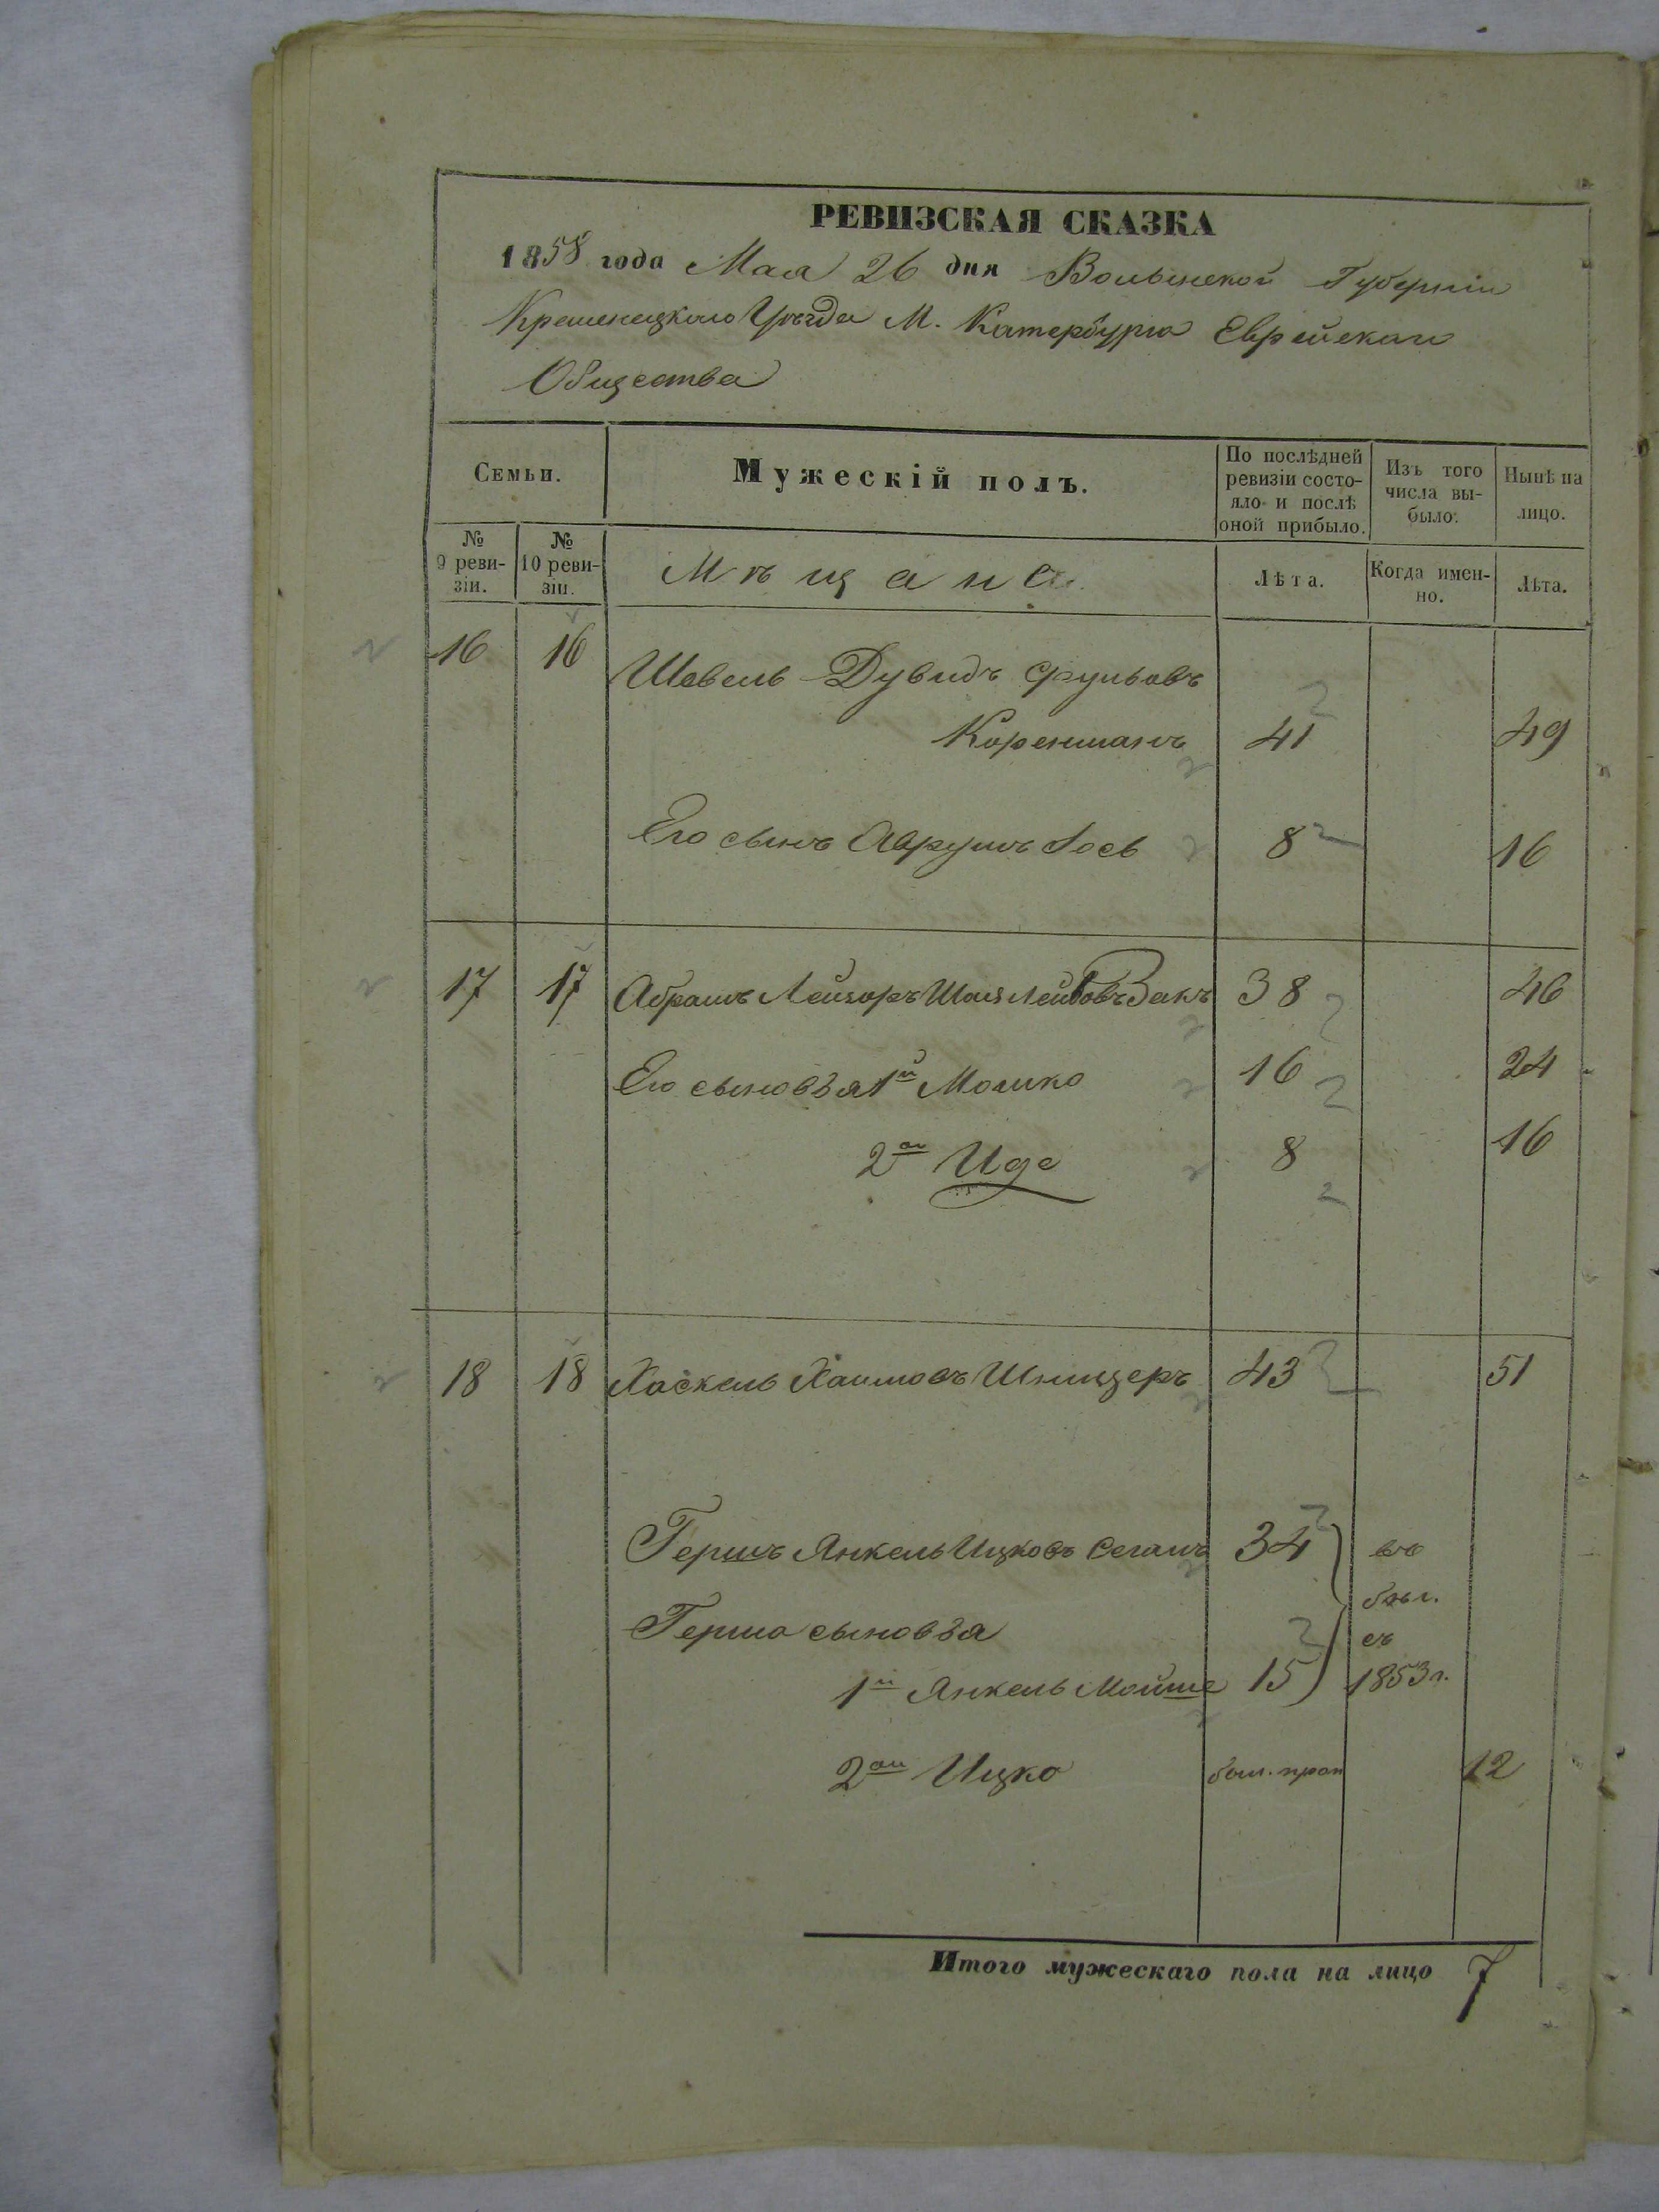 РЕВИЗСКАЯ СКАЗКА
1858 года Мая 26 дня Волынской Губерніи
Кременецкого Уѣзда М. Катербурга Еврейскаго
Общества
Семьи.
Мужескій полъ.
По послѣдней ревизіи состояло и послѣ оной прибыло.
Изъ того числа выбыло.
Нынѣ на лицо.
№ 9 ревизіи.
№ 10 ревизіи.
Мѣщане
Лѣта.
Когда именно.
Лѣта.
16 16 Шевель Дувидъ Сруловъ
Коренманъ 41 49
Его сынъ Аврумъ Іось 8 16
17 17 Абрамъ Лейзоръ Шая Лейбовъ Закъ 38 46
Его сыновья 1й Мошко 16 24
2ой Иде 8 16
18 18 Хаскель Хаимовъ Шницеръ 43 51
Гершъ Янкель Ицковъ Сегалъ 34 въ
бѣг.
Герша сыновья съ
1й Янкель Мойше 15 1853 г.
2ой Ицко был. проп 12
Итого мужескаго пола на лицо 7